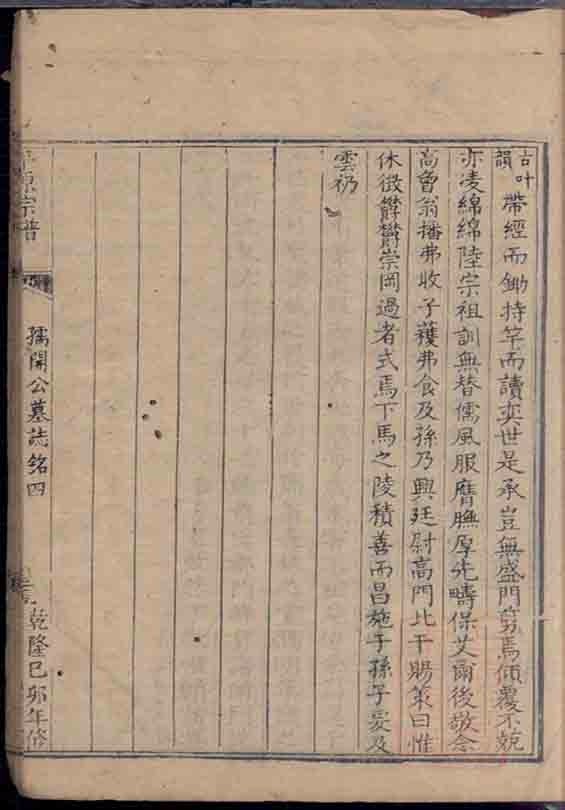 古叶韻 帶經而鋤持竿而讀奕世是承豈無盛門剪焉傾覆不競
亦凌綿綿陸宗祖訓無替儒風服膺膴厚先疇保艾爾後敬念
高曾翁播弗收子穫弗食及孫乃興廷尉高門比干賜策曰惟
休徵欝欝崇岡過者式焉下馬之陵積善而昌施于孫子爰及
雲礽
原宗譜
孺開公墓誌銘四
乾隆己卯年修